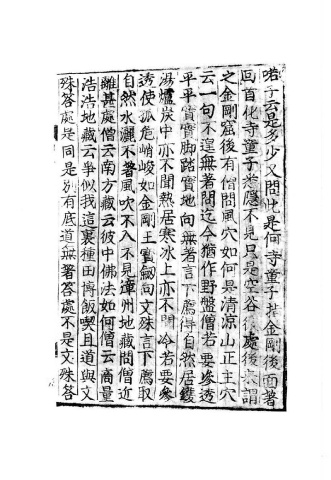 喏子云是多少又問此是何寺童子指金剛後面著
回首化寺童子悉隱不見只是空谷彼處後来謂
之金剛窟後有僧問風穴如何是清凉山正主穴
云一句不遑無著問迄今猶作野盤僧若要參透
平平實實脚踏實地向無著言下薦得自然居鑊
湯爐炭中亦不聞熱居寒冰上亦不聞冷若要參
透使孤危峭峻如金剛王寶劔向文殊言下薦取
自然水灑不著風吹不入不見漳州地藏問僧近
離甚處僧云南方藏云彼中佛法如何僧云商量
浩浩地藏云爭似我這裏種田博飯喫且道與文
殊答處是同是別有底道無著答處不是文殊答